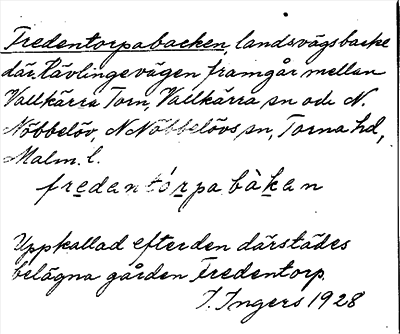 Fredentorpabacken, landsvägsbacke
där Kävlingevägen framgår mellan
Vallkärra Torn, Vallkärra sn och N.
Nöbbelöv, N Nöbbelövs sn, Torna hd,
Malm. l.
fredantórpabàkan
Uppkallad efter den därstädes
belägna gården Fredentorp.
I. Ingers 1928